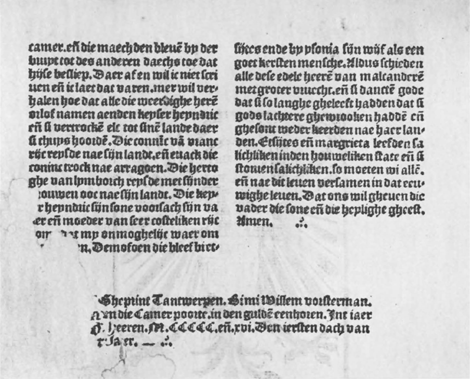 camer. eñ die maechden bleuē by der
buypt toe des anderen daechs toe dat
hijse besliep. Daer af en wil ic niet scri
uen eñ ic laet dat varen. mer wil ver-
halen hoe dat alle die weerdighe herē
orlof namen aenden keyser heyndric
eñ si vertrockē elc tot sinē lande daer
si thuys hoordē. Die connīc vā vranc
rijc reysde nae sijn lande. eñ euack die
coninc trock nae arragoen. Die herto
ghe van lymborch reysde met sijnder
rouwen ooc nae sijn lande. Die key-
r heyndric sijn sone voorsach sijn va
er eñ moeder van seer costeliken rijc
dat my onmoghelijc waer om
en. Demofoen die bleef bi et-
sijtes ende by ysonia sijn wijf als een
goet kersten mensche. Aldus schieden
alle dese edele heerē van malcanderē
met groter vruecht. eñ si danctē gode
dat si so langhe gheleeft hadden dat si
gods lachtere ghewroken haddē eñ
ghesont weder keerden nae haer lan-
den. Etsijtes eñ margrieta leefden sa
lichliken inden houweliken state eñ si
storuen salichliken. so moeten wi allē.
eñ nae dit leuen versamen in dat eeu-
wighe leuen. Dat ons wil gheuen die
vader die sone eñ die heylighe gheest.
Amen.
Gheprint Tantwerpen. Bi mi Willem vorsterman.
Aen die Camer poorte. in den guldē eenhoren. Int iaer
Heeren. M.CCCCC. eñ. xvi. Den iersten dach van
Jaer.